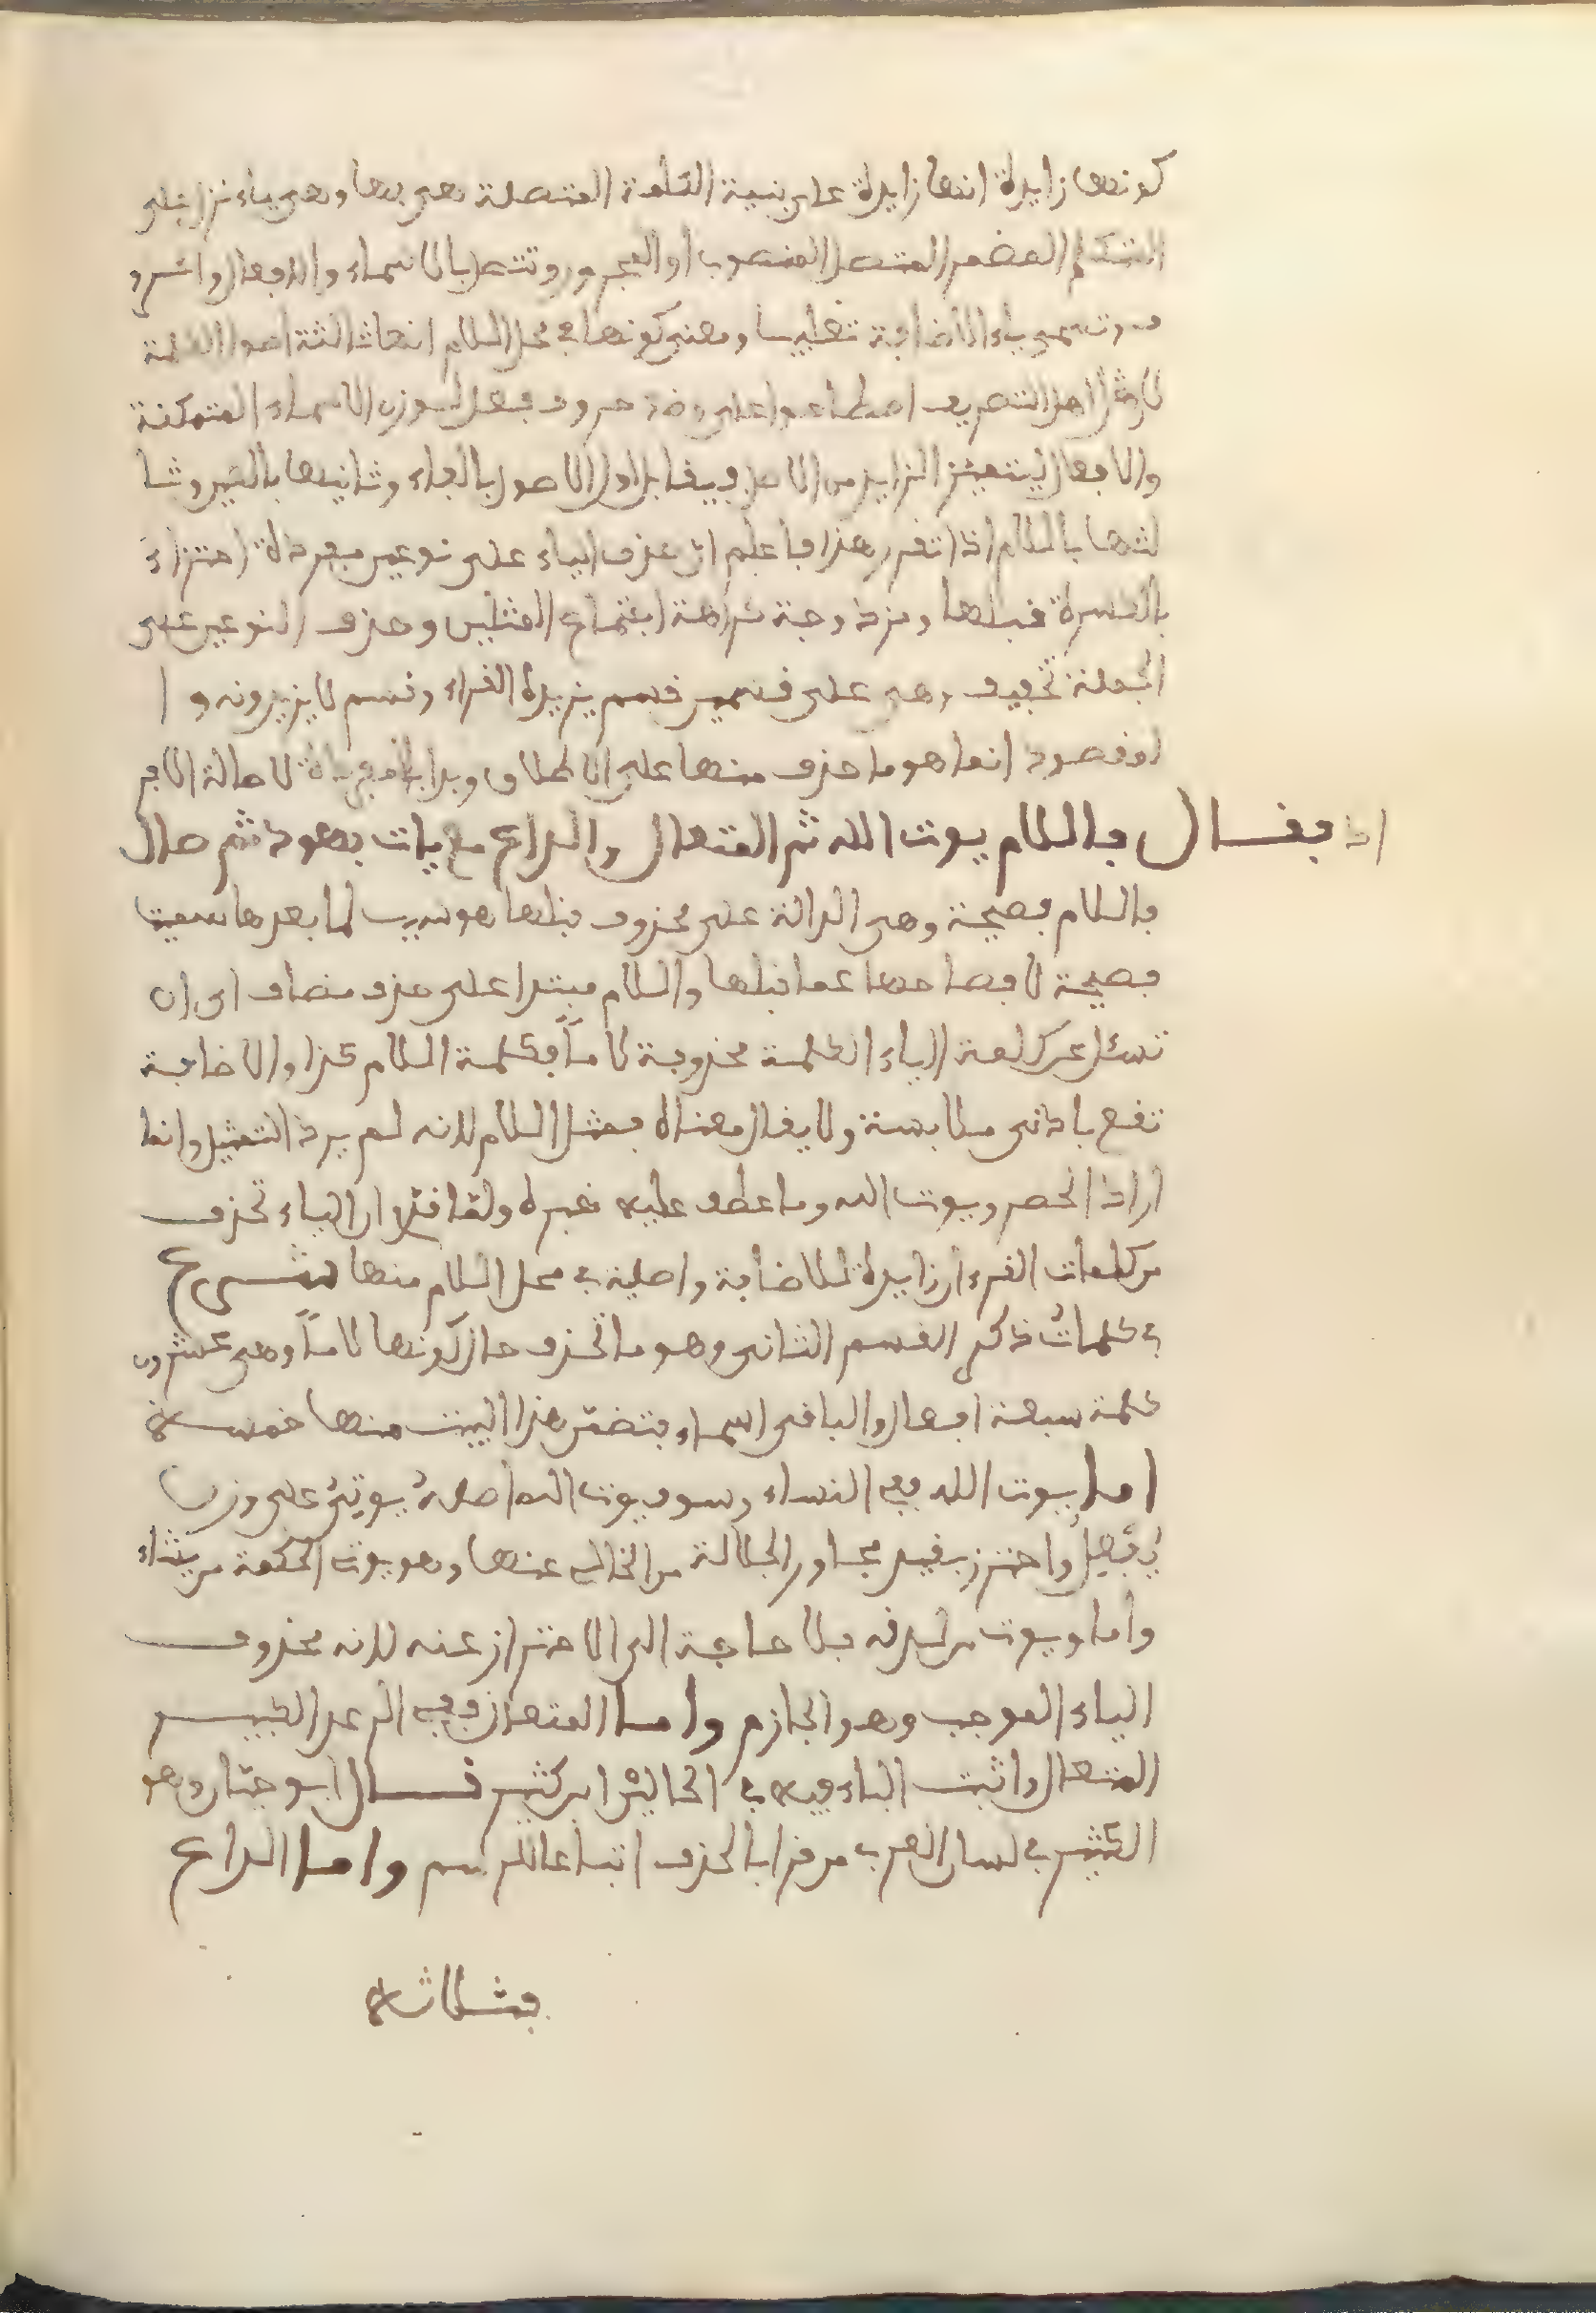 كونها زايدة انها زايدة على بنية الكلمة المتصلة هى بها وهى ياء تزاد على
المتكلم المضمر المتصل المنصوب او المجرور وتتصل بالاسماء والافعال والحرو
ف وتسمى ياء الاضافة تغليبا ومعنى كونها في محل اللام انها ثالثة اصول الكلمة
لان اهل التصريف اصطلحوا على وضع حروف فعل لوزن الاسماء المتمكنة
والافعال ليتميز الزايد من الاصل فيقابل اول الاصول بالفاء وثانيها بالعين وثا
لثها باللام اذا تقرر هذا فاعلم ان حذف الياء على نوعين مفردة اجتزاء
بالكسرة قبلها ومزدوجة كراهة اجتماع المثلين وحذف النوعين على
الجملة تخفيف وهى على قسمين قسم يزيده القراء وقسم لا يزيدونه و
المقصود انما هو ما حذف منها على الاطلاق وبدا بالمفردة لاصالة الافر
اد فقال فاللام يوت الله ثم المتعال والداع مع يات بهود ثم صال
فاللام فصيحة وهى الدالة على محذوف قبلها هو سبب لما بعدها سميت
فصيحة لافصاحها عما قبلها واللام مبتدا على حذف مضاف اى ان
تسئل عن كلمة الياء الكلمة محذوفة لاماً فكلمة اللام كذا والاضافة
تقع بادنى ملابسة ولا يقال معناه فمثل اللام لانه لم يرد التمثيل وانما
اراد الحصر ويوت الله وما عطف عليه خبره ولما قدم ان الياء تحذف
من كلمات القرءان زايدة للاضافة واصلية في محل اللام منها شرع
في كلمات ذكر القسم الثانى وهو ما تحذف حال كونها لاماً وهى عشرون
كلمة سبعة افعال والباقى اسماء فتضمن هذا البيت منها خمسة
اما يوت الله ففي النساء وسوف يوت الله اصله يوتي على وزن
يفعل واحترز بقيد مجاور الجلالة من الخالى عنها وهو يوت الحكمة من يشاء
واما ويوت من لدنه فلا حاجة الى الاحتراز عنه لانه محذوف
الياء الموجب وهو الجازم واما المتعال ففي الرعد الكبير
المتعال واثبت الياء فيه في الحالين ابن كثير قال ابو حيان وهو
الكثير في لسان العرب ومن قرا بالحذف اتباعا للرسم واما الداع
فثلاثة